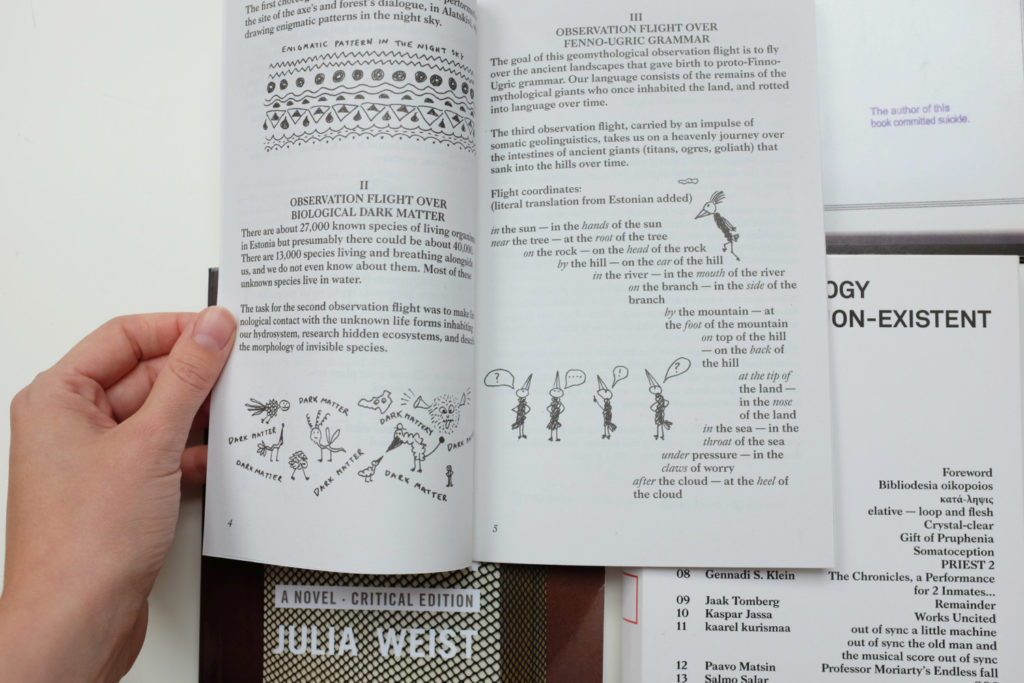 The first
the site of the axe's and forest's dialogue, in Alatskivi
drawing enigmatic patterns in the night sky.
ENIGMATIC PATTERN IN THE NIGHT SKY
II
OBSERVATION FLIGHT OVER
BIOLOGICAL DARK MATTER
There are about 27,000 known species of living organisms
in Estonia but presumably there could be about 40,000.
There are 13,000 species living and breathing alongside
us, and we do not even know about them. Most of these
unknown species live in water.
The task for the second observation flight was to make
nological contact with the unknown life forms inhabiting
our hydrosystem, research hidden ecosystems, and describe
the morphology of invisible species.
DARK MATTER
DARK MATTER
DARK MATTER
DARK MATTER
DARK MATTER
DARK MATTER
DARK MATTER
4
III
OBSERVATION FLIGHT OVER
FENNO-UGRIC GRAMMAR
The goal of this geomythological observation flight is to fly
over the ancient landscapes that gave birth to proto-Finno-
Ugric grammar. Our language consists of the remains of the
mythological giants who once inhabited the land, and rotted
into language over time.
The third observation flight, carried by an impulse of
somatic geolinguistics, takes us on a heavenly journey over
the intestines of ancient giants (titans, ogres, goliath) that
sank into the hills over time.
Flight coordinates:
(literal translation from Estonian added)
in the sun — in the hands of the sun
near the tree — at the root of the tree
on the rock — on the head of the rock
by the hill — on the ear of the hill
in the river — in the mouth of the river
on the branch — in the side of the
branch
by the mountain — at
the foot of the mountain
on top of the hill
— on the back of
the hill
at the tip of
the land —
in the nose
of the land
in the sea — in the
throat of the sea
under pressure — in the
claws of worry
after the cloud — at the heel of
the cloud
?
....
!
?
5
The author of this
book committed suicide.
OGY
ON-EXISTENT
Foreword
Bibliodesia oikopoios
κατά-ληψις
elative — loop and flesh
Crystal-clear
Gift of Pruphenia
Somatoception
PRIEST 2
08 Gennadi S. Klein The Chronicles, a Performance
for 2 Inmates...
09 Jaak Tomberg Remainder
10 Kaspar Jassa Works Uncited
11 kaarel kurismaa out of sync a little machine
out of sync the old man and
the musical score out of sync
12 Paavo Matsin Professor Moriarty's Endless fall
13 Salmo Salar
A NOVEL · CRITICAL EDITION
JULIA WEIST